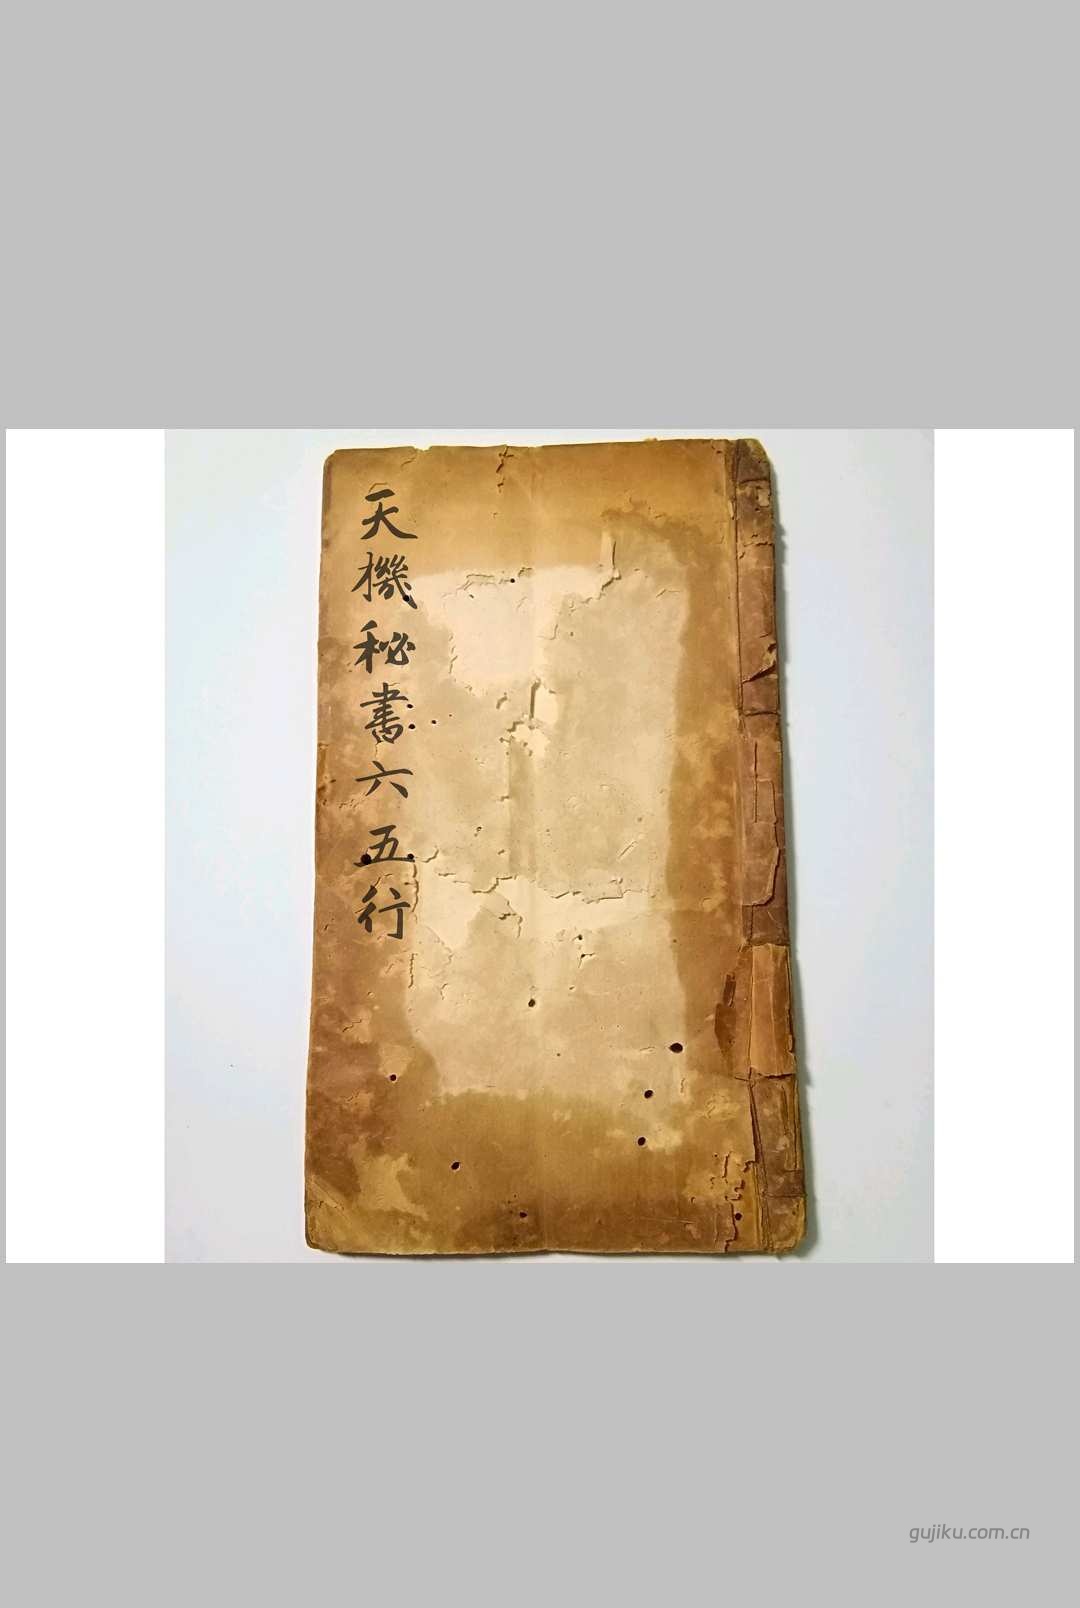 天機秘書六五行
gujiku.com.cn